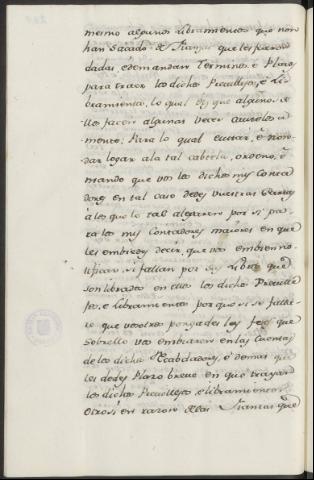 mesmo algunos libramientos que non
han sacado: de fianzas que les fueron
dadas, e demandan termino, e Plazo
para traer los dichos Previllejos, e Li-
bramientos, lo qual diz que algunos de
llos facen algunas veces
mente: Para lo qual evitar, e non
dar logar a la tal cabtela, ordeno, e
mando que vos los dichos mis Conta
dores en tal caso dedes vuestras Cartas
a los que lo tal alegaren por si pa
ra los mis Contadores maiores en que
les embiedes decir, que vos embien no
tificar si fallan por Libros que
son librados en ellos los dichos Preville
jos, e libramientos por que si se falla
re que vosotros pongades la fee que
sobrello vos embiaren en las Cuentas
de los dichos Recabdadores, e demas que
les dedes Plazo breve en que trayan
los dichos Previllejos, e libramientos
Otrosi en razon de las fianzas que